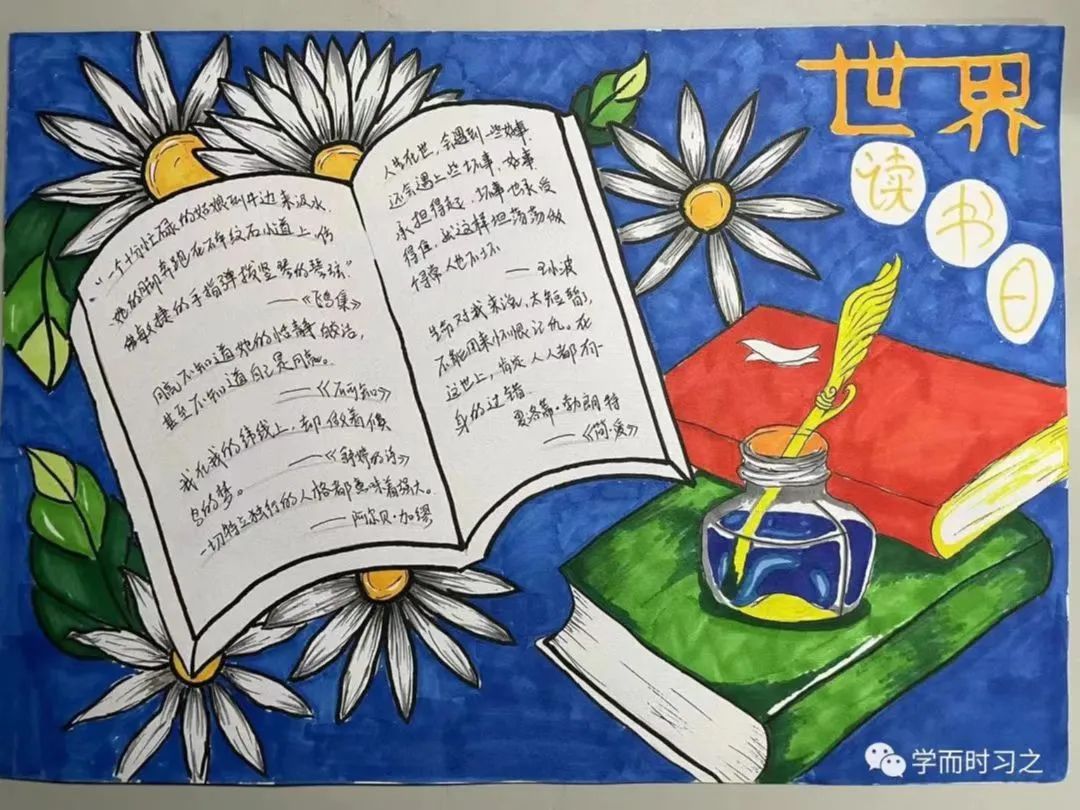 世界
读书日
"一个十分忙碌的姑娘到井边来汲水,
她的脚奔跑在不年纹石小道上,仿
佛敏捷的手指弹拨竖琴的琴弦."
——《飞鸟集》
月亮不知道她的恬静皎洁,
甚至不知道自己是月亮。
——《不可知》
我在我的纬线上,却做着候
鸟的梦。
——《舒婷的诗》
一切特立独行的人格都意味着强大。
——阿尔贝·加缪
人生在世,会遇到一些好事,
还会遇上些坏事,好事
承担得起,坏事也承受
得住,就这样坦荡荡做
个寻常人也不坏
——王小波
生命对我来说,太短暂,
不能用来怀恨记仇。在
这世上,肯定人人都有一
身的过错
夏洛蒂·勃朗特
——《简·爱》
学而时习之